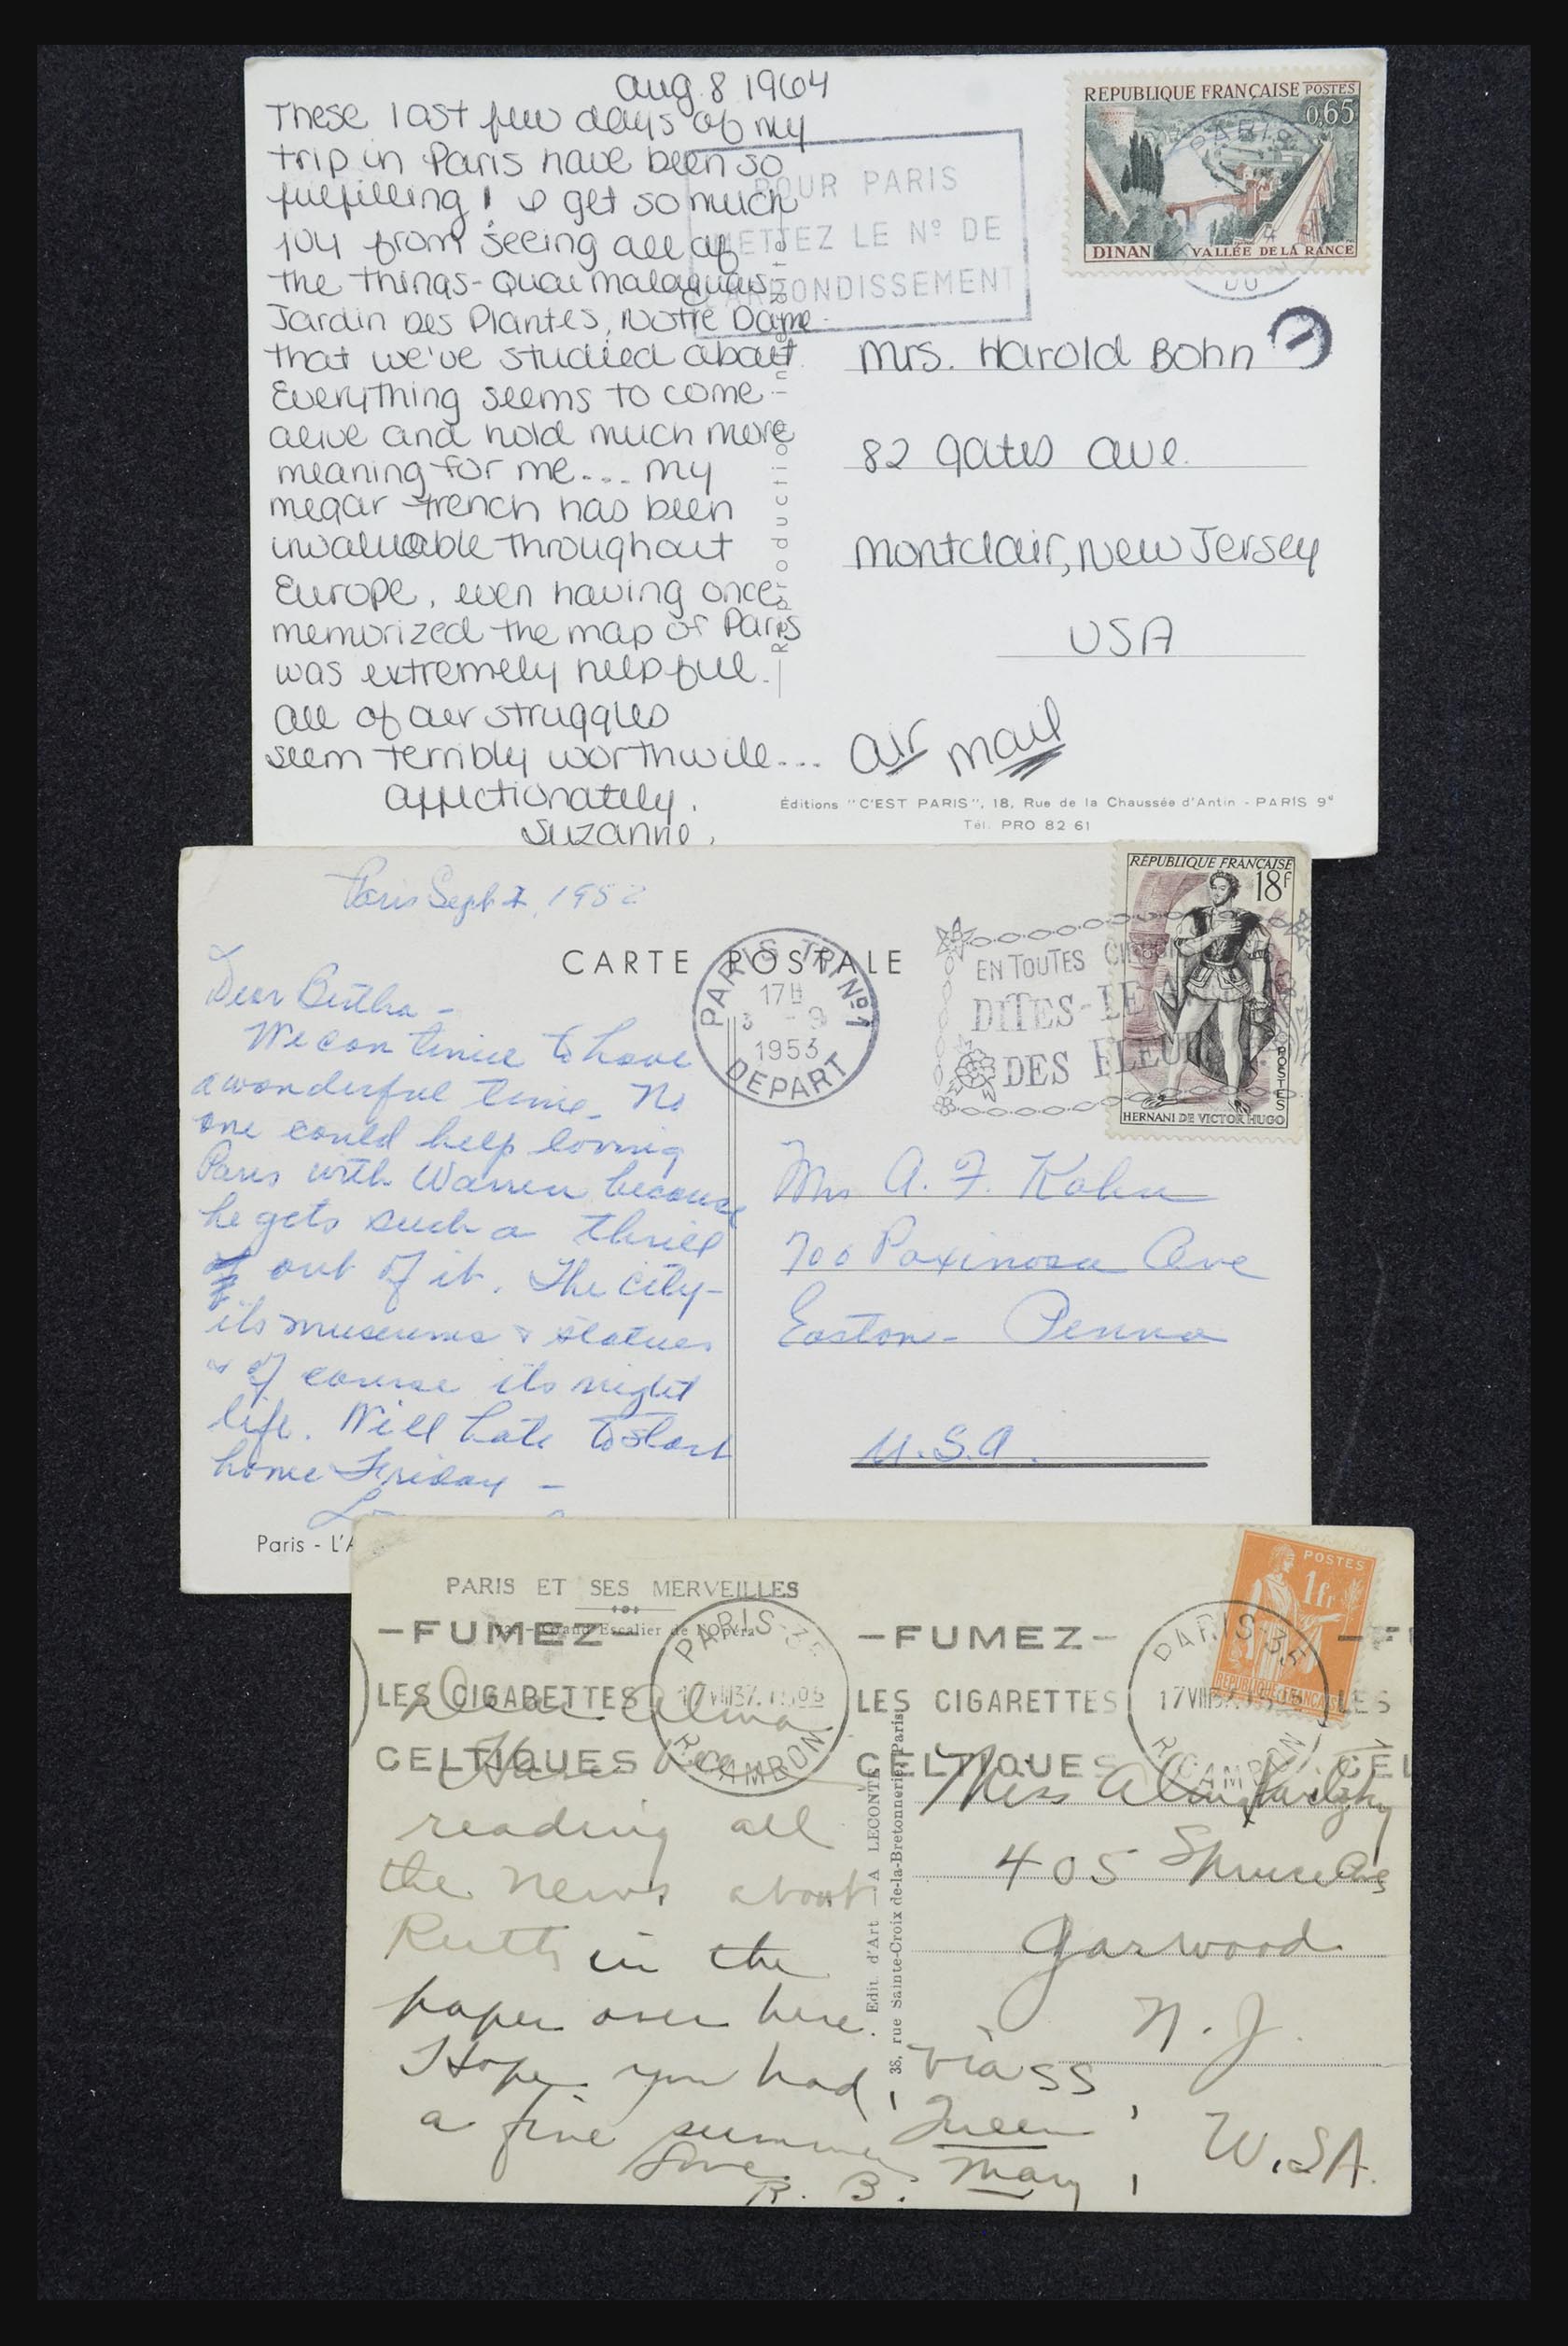 Aug. 8 1964
These last few days of my
trip in Paris have been so
fulfilling! I get so much
joy from seeing all of
the things - Quai Malaquais,
Jardin Des Plantes, Notre Dame
that we've studied about.
Everything seems to come
alive and hold much more
meaning for me.... My
megar french has been
invaluable throughout
Europe, even having once
memorized the map of Paris
was extremely helpful.
All of our struggles
seem terribly worthwile...
Affectionately,
Suzanne.
POUR PARIS
METTEZ LE Nº DE
ARRONDISSEMENT
REPUBLIQUE FRANÇAISE POSTES
0,65
PARIS
DINAN VALLÉE DE LA RANCE
Mrs. Harold Bohn
82 Gates Ave.
Montclair, New Jersey
USA
Air Mail
Reproduction
Éditions "C'EST PARIS", 18, Rue de la Chaussée d'Antin - PARIS 9e
Tél. PRO 82 61
Paris Sept 1952
CARTE POSTALE
PARIS TRI Nº1
17H
3 -9
1953
DEPART
EN TOUTES
DITES-LE
DES FLEU
RÉPUBLIQUE FRANÇAISE
18f
POSTES
HERNANI DE VICTOR HUGO
Dear Bertha -
We continue to have
a wonderful time. No
one could help loving
Paris with Warren because
he gets such a thrill
out of it. The city -
its museums & statues
& of course its night
life. Will hate to start
home Friday -
Mrs A. F. Kahn
700 Paxinosa Ave
Easton - Penna
U.S.A.
Paris - L'A
PARIS ET SES MERVEILLES
Grand Escalier de l'Opéra
-FUMEZ-
LES CIGARETTES
CELTIQUES
PARIS 35
17 VIII 37. 1505
R. CAMBON
-FUMEZ-
LES CIGARETTES
CELTIQUES
PARIS 35
17 VIII
R. CAMBON
- F
LES
CEL
POSTES
1fr
REPUBLIQUE FRANÇAISE
Dear Alma
Have been
reading all
the news about
Ruth in the
paper over here.
Hope you had
a fine summer
Love
R. B.
Edit. d'Art - A LECONTE
38, rue Sainte-Croix de-la-Bretonnerie, Paris
Miss Alma
405 Spruce Ave
Garwood
N. J.
Via SS
Queen
Mary
U.S.A.